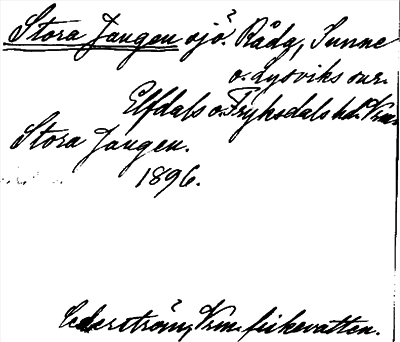 Stora Jangen sjö. Råda, Sunne
o. Lysviks snr.
Elfdals o. Fryksdals hd. Vrm.
Stora Jangen.
1896.
Cederström, Vrm. fiskevatten.